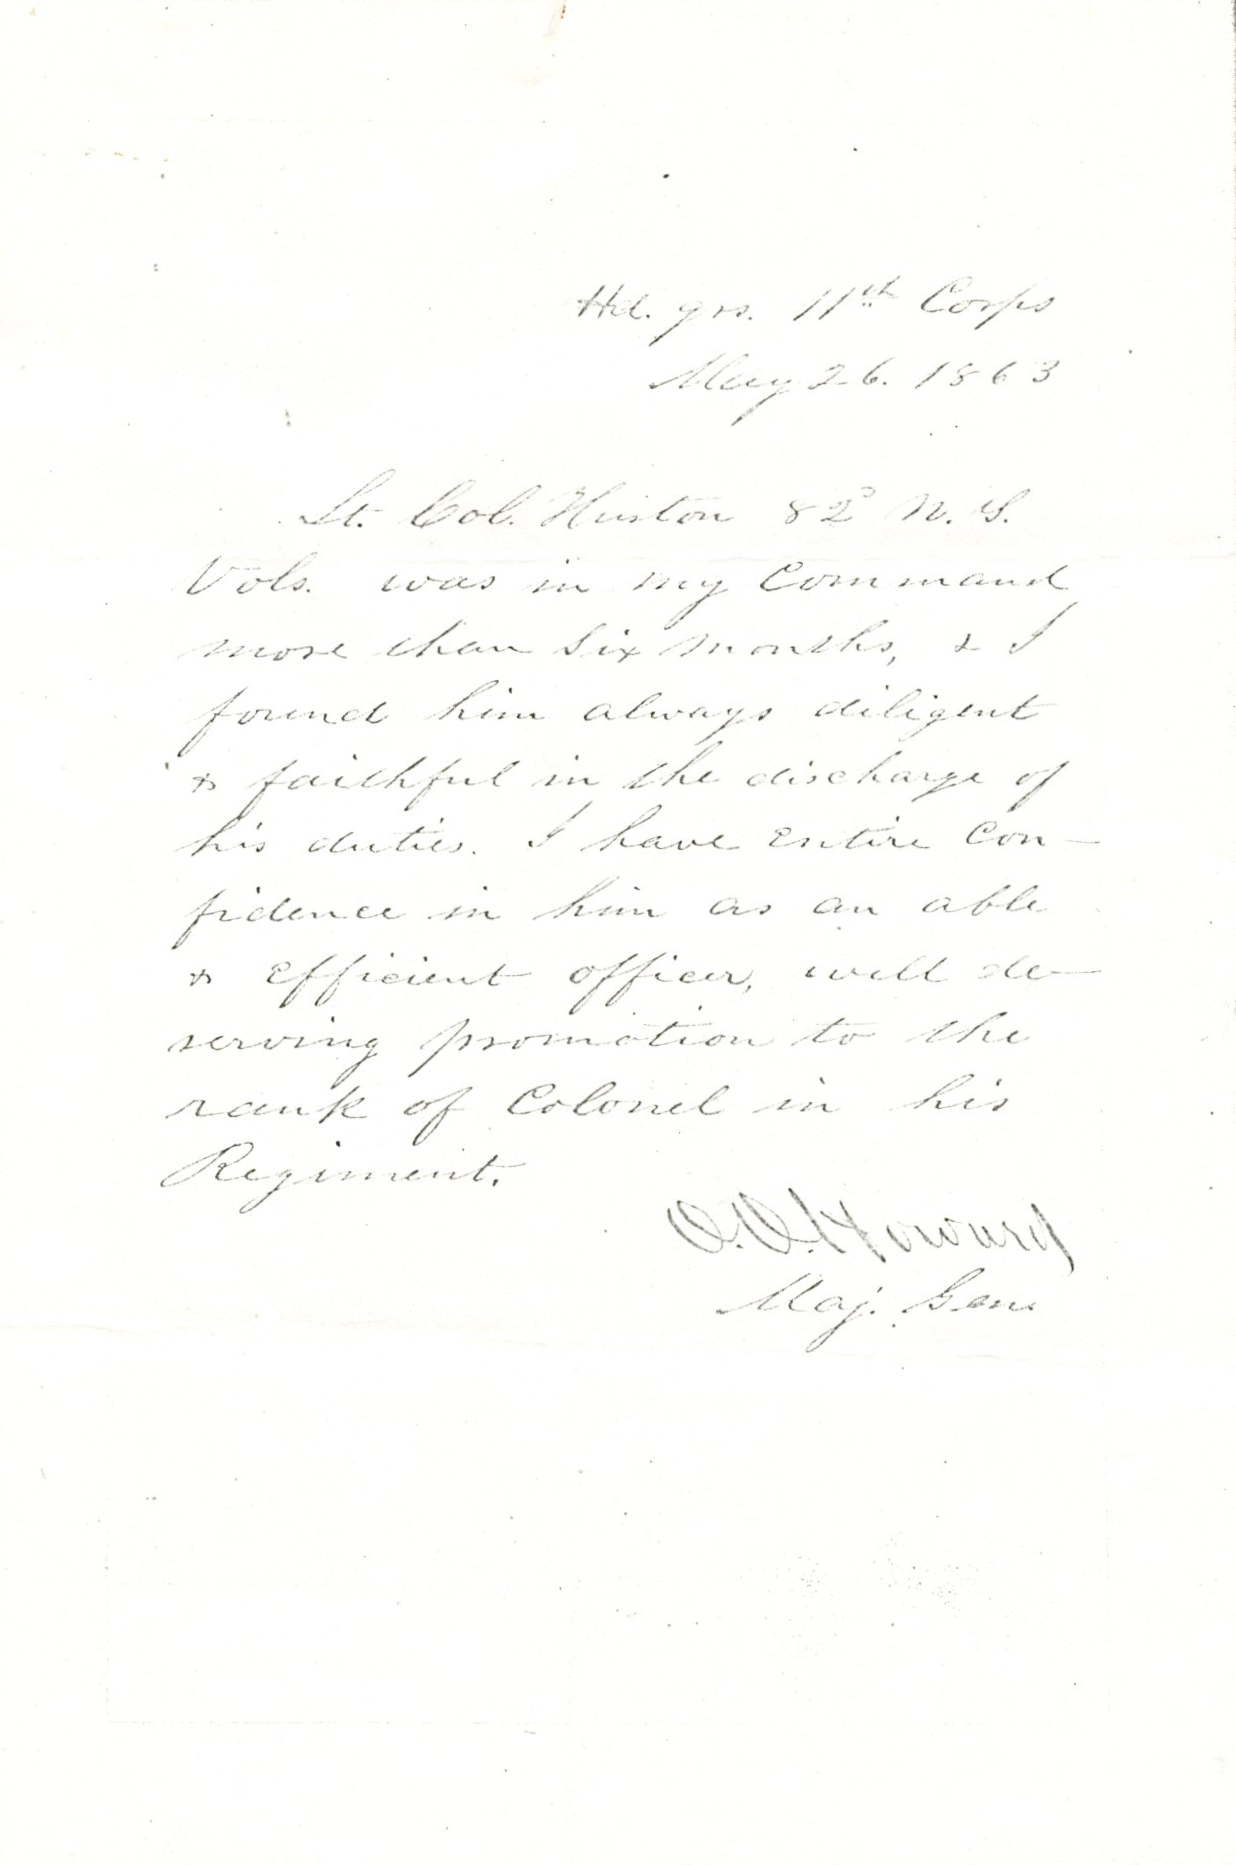 Hd. qrs. 11th Corps
May 26. 1863
Lt. Col. Huston 82d N. Y.
Vols. was in my Command
more than Six months, & I
found him always diligent
& faithful in the discharge of
his duties. I have entire Con-
fidence in him as an able
& efficient officer, well de-
serving promotion to the
rank of Colonel in his
Regiment.
O. O. Howard
Maj. Gen.